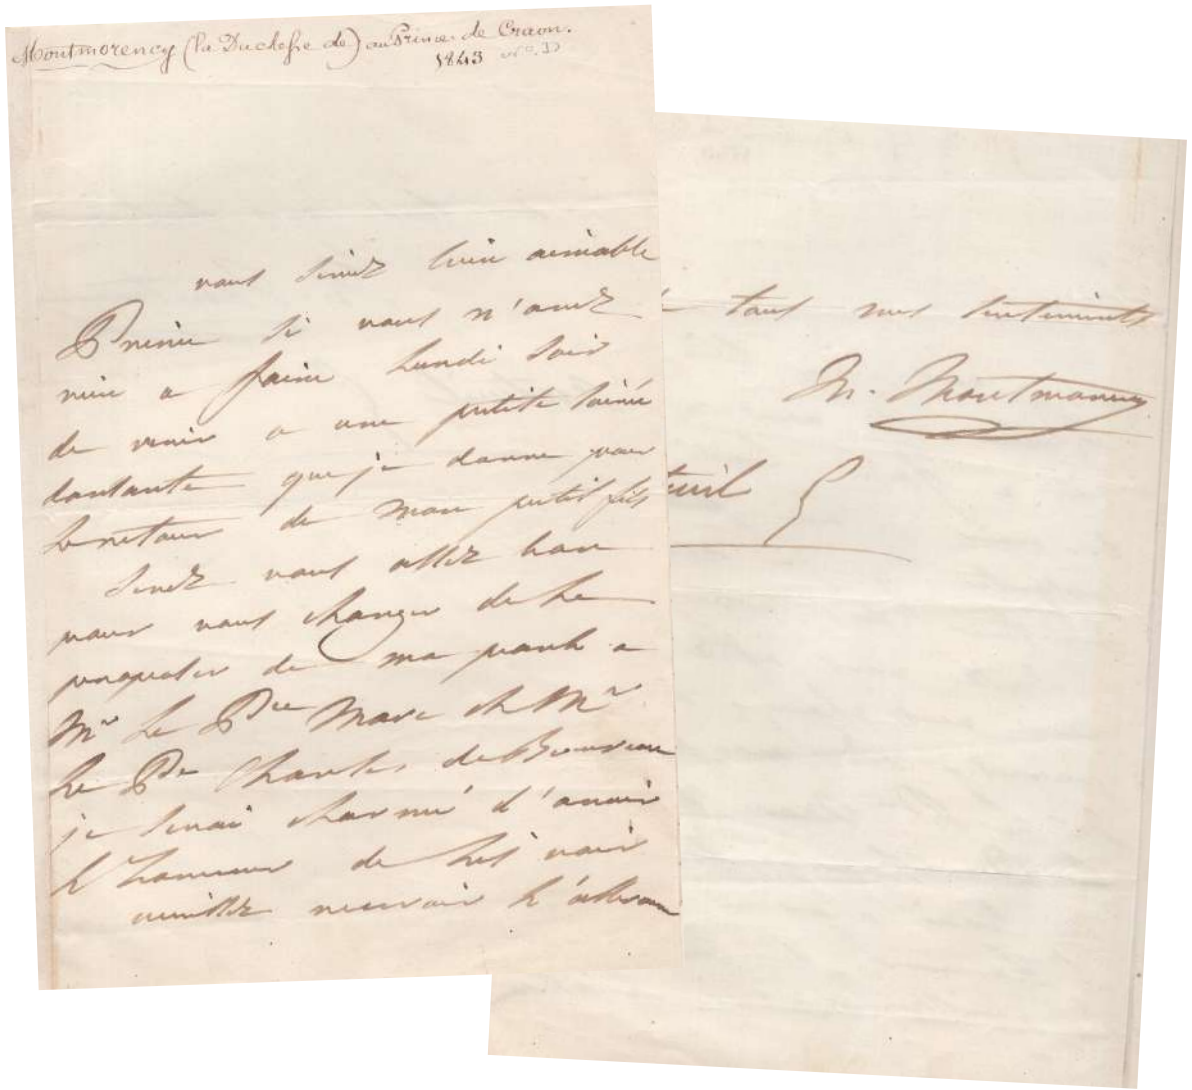 Montmorency (la Duchesse de) au Prince de Craon.
1843
vous seriez bien aimable
Prince si vous n'avez
rien a faire Lundi soir
de venir a une petite soirée
dansante que je donne pour
le retour de mon petit fils
serez vous assez bon
pour vous charger de le
proposer de ma part a
Mr le Pce Marc et Mr
le Pce Charles de Beauveau
je serai charmé d'avoir
l'honneur de les voir
veuillez recevoir l'assuran
tous mes sentiments
M. Montmorency
teuil